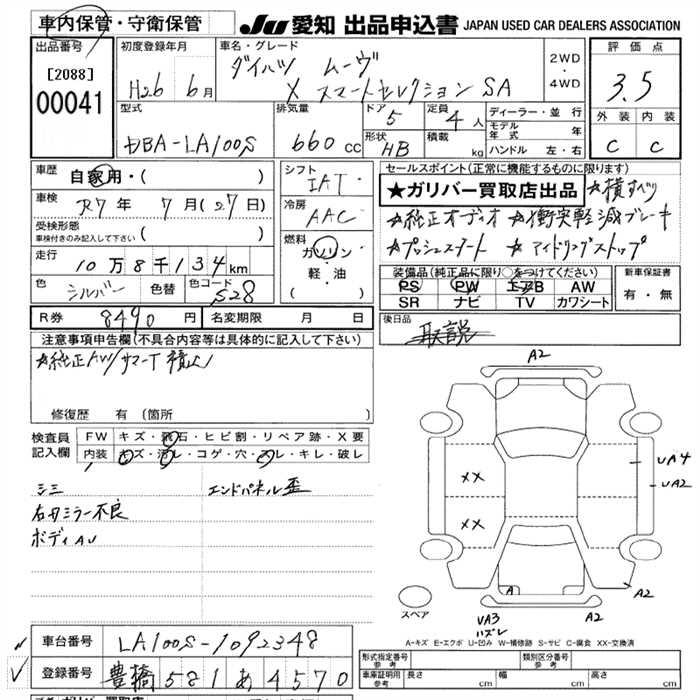 車内保管・守衛保管
JU 愛知 出品申込書 JAPAN USED CAR DEALERS ASSOCIATION
出品番号 [2088] 00041
初度登録年月 H26年 6月
車名・グレード ダイハツ ムーヴ X スマートセレクション SA
2WD・4WD
評価点 3.5
外装 C 内装 C
型式 DBA-LA100S
排気量 660 CC
ドア 5 定員 4人
形状 HB 積載 kg
ディーラー・並行
モデル年式 年
ハンドル 左・右
車歴 自家用・( )
車検 R7年 7月(27日)
受検形態
車検付きのみ記入して下さい ( )
走行 10万8千134km
色 シルバー 色替 色コード S28
シフト IAT
冷房 AAC
燃料 ガソリン 軽・油 ( )
セールスポイント(正常に機能するものに限ります)
★ガリバー買取店出品 ☆横すべり
☆純正オーディオ ☆衝突軽減ブレーキ
☆プッシュスタート ☆アイドリングストップ
装備品(純正品に限り○をつけてください)
PS PW エアB AW
SR ナビ TV カワシート
新車保証書 有・無
R券 8490円 名変期限 月 日
後日品 取説
注意事項申告欄(不具合内容等は具体的に記入して下さい)
☆純正AW/サマーT積込
修復歴 有(箇所
検査員記入欄
FW キズ・飛石・ヒビ割・リペア跡・X要
内装 キズ・汚レ・コゲ・穴・スレ・キレ・破レ
シミ エンドパネル歪
右ドアミラー不良
ボディAU
A2
XX
XX
UA4
UA2
A
A2
A2
UA3
ハズレ
スペア
A-キズ E-エクボ U-凹み W-補修跡 S-サビ C-腐食 XX-交換済
車台番号 LA100S-1092348
登録番号 豊橋 581 あ 4570
形式指定番号 参考 類別区分番号 参考
車庫証明用 参考 長さ cm 幅 cm 高さ cm